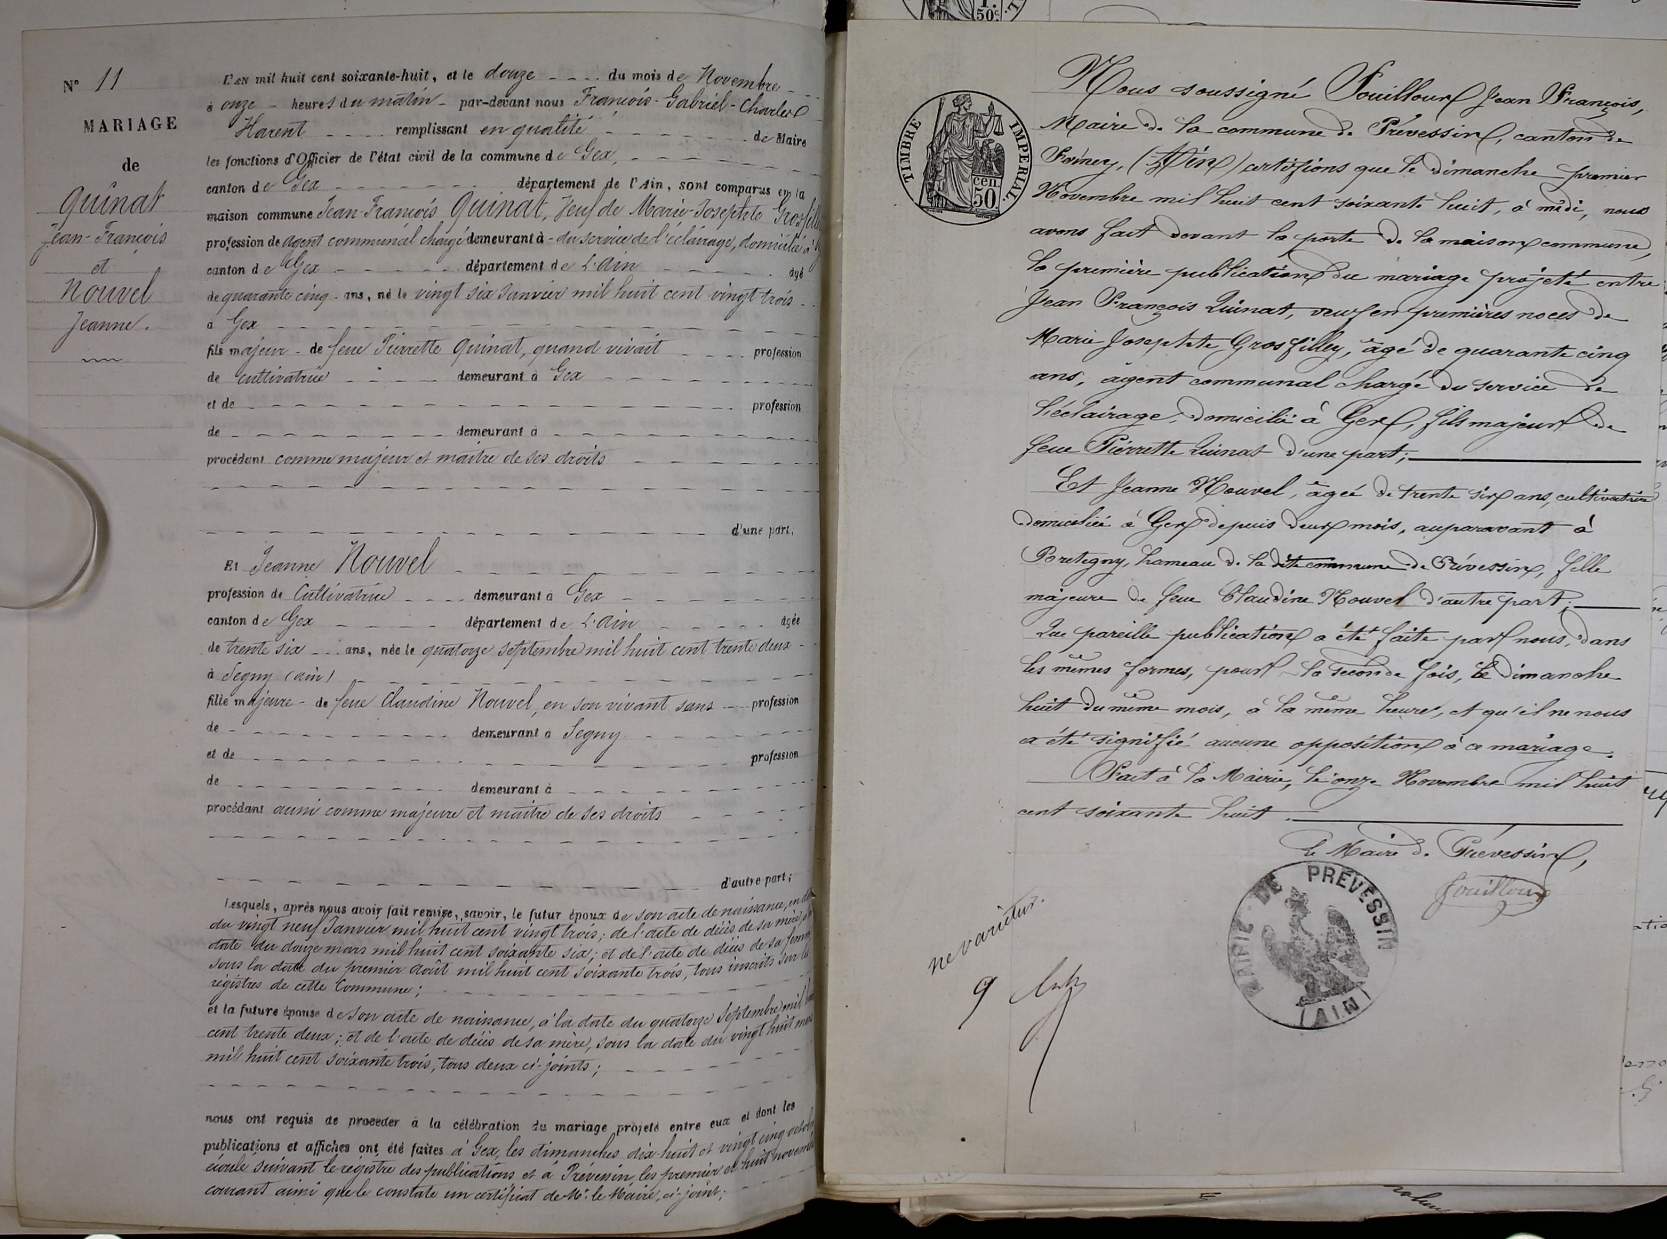 N° 11
MARIAGE
de
Quinat
Jean-François
et
Nouvel
Jeanne.
L'AN mil huit cent soixante-huit, et le douze du mois de Novembre
à onze heures du matin par-devant nous François-Gabriel-Charles
Harent remplissant en qualité de Maire
les fonctions d'Officier de l'état civil de la commune de Gex,
canton de Gex département de l'Ain, sont comparus en la
maison commune Jean-François Quinat, veuf de Marie-Josephte Grosfilley
profession de agent communal chargé demeurant à du service de l'éclairage, domicilié à
canton de Gex département de L'Ain âgé
de quarante cinq ans, né le vingt six Janvier mil huit cent vingt trois
à Gex
fils majeur de feue Pierrette Quinat, quand vivait profession
de cultivatrice demeurant à Gex
et de profession
de demeurant à
procédant comme majeur et maître de ses droits
d'une part,
Et Jeanne Nouvel
profession de Cultivatrice demeurant à Gex
canton de Gex département de L'Ain âgée
de trente six ans, née le quatorze septembre mil huit cent trente deux
à Segny (Ain)
fille majeure de feue Claudine Nouvel, en son vivant sans profession
de demeurant à Segny
et de profession
de demeurant à
procédant aussi comme majeure et maître de ses droits
d'autre part;
Lesquels, après nous avoir fait remise, savoir, le futur époux de son acte de naissance, en date
du vingt neuf Janvier mil huit cent vingt trois; de l'acte de décès de sa mère, à la
date du douze mars mil huit cent soixante six; et de l'acte de décès de sa femme
sous la date du premier août mil huit cent soixante trois, tous inscrits sur les
registres de cette Commune;
et la future épouse de son acte de naissance, à la date du quatorze Septembre mil huit
cent trente deux; et de l'acte de décès de sa mère, sous la date du vingt huit mars
mil huit cent soixante trois, tous deux ci-joints;
nous ont requis de procéder à la célébration du mariage projeté entre eux et dont les
publications et affiches ont été faites à Gex, les dimanches dix-huit et vingt cinq octobre
écoulé suivant le registre des publications et à Prévessin, les premier et huit novembre
courant ainsi que le constate un certificat de Mr. le Maire, ci-joint;
TIMBRE IMPERIAL
50 cen
Nous soussigné Fouilloux Jean François,
Maire de la commune de Prévessin, canton de
Ferney, (Ain) certifions que le dimanche premier
Novembre mil huit cent soixante huit, à midi, nous
avons fait devant la porte de la maison commune,
la première publication du mariage projeté entre
Jean François Quinat, veuf en premières noces de
Marie Josephte Grosfilley, âgé de quarante cinq
ans, agent communal chargé du service de
l'éclairage, domicilié à Gex, fils majeur de
feue Pierrette Quinat d'une part;
Et Jeanne Nouvel, âgée de trente six ans, cultivatrice
domiciliée à Gex depuis deux mois, auparavant à
Bretigny, hameau de la dite commune de Prévessin, fille
majeure de feue Claudine Nouvel d'autre part;
Que pareille publication a été faite par nous, dans
les mêmes formes, pour la seconde fois, le dimanche
huit du même mois, à la même heure, et qu'il ne nous
a été signifié aucune opposition à ce mariage.
Fait à la Mairie, le onze Novembre mil huit
cent soixante huit.
Le Maire de Prévessin,
Fouilloux
MAIRIE DE PREVESSIN
(AIN)
ne varietur.